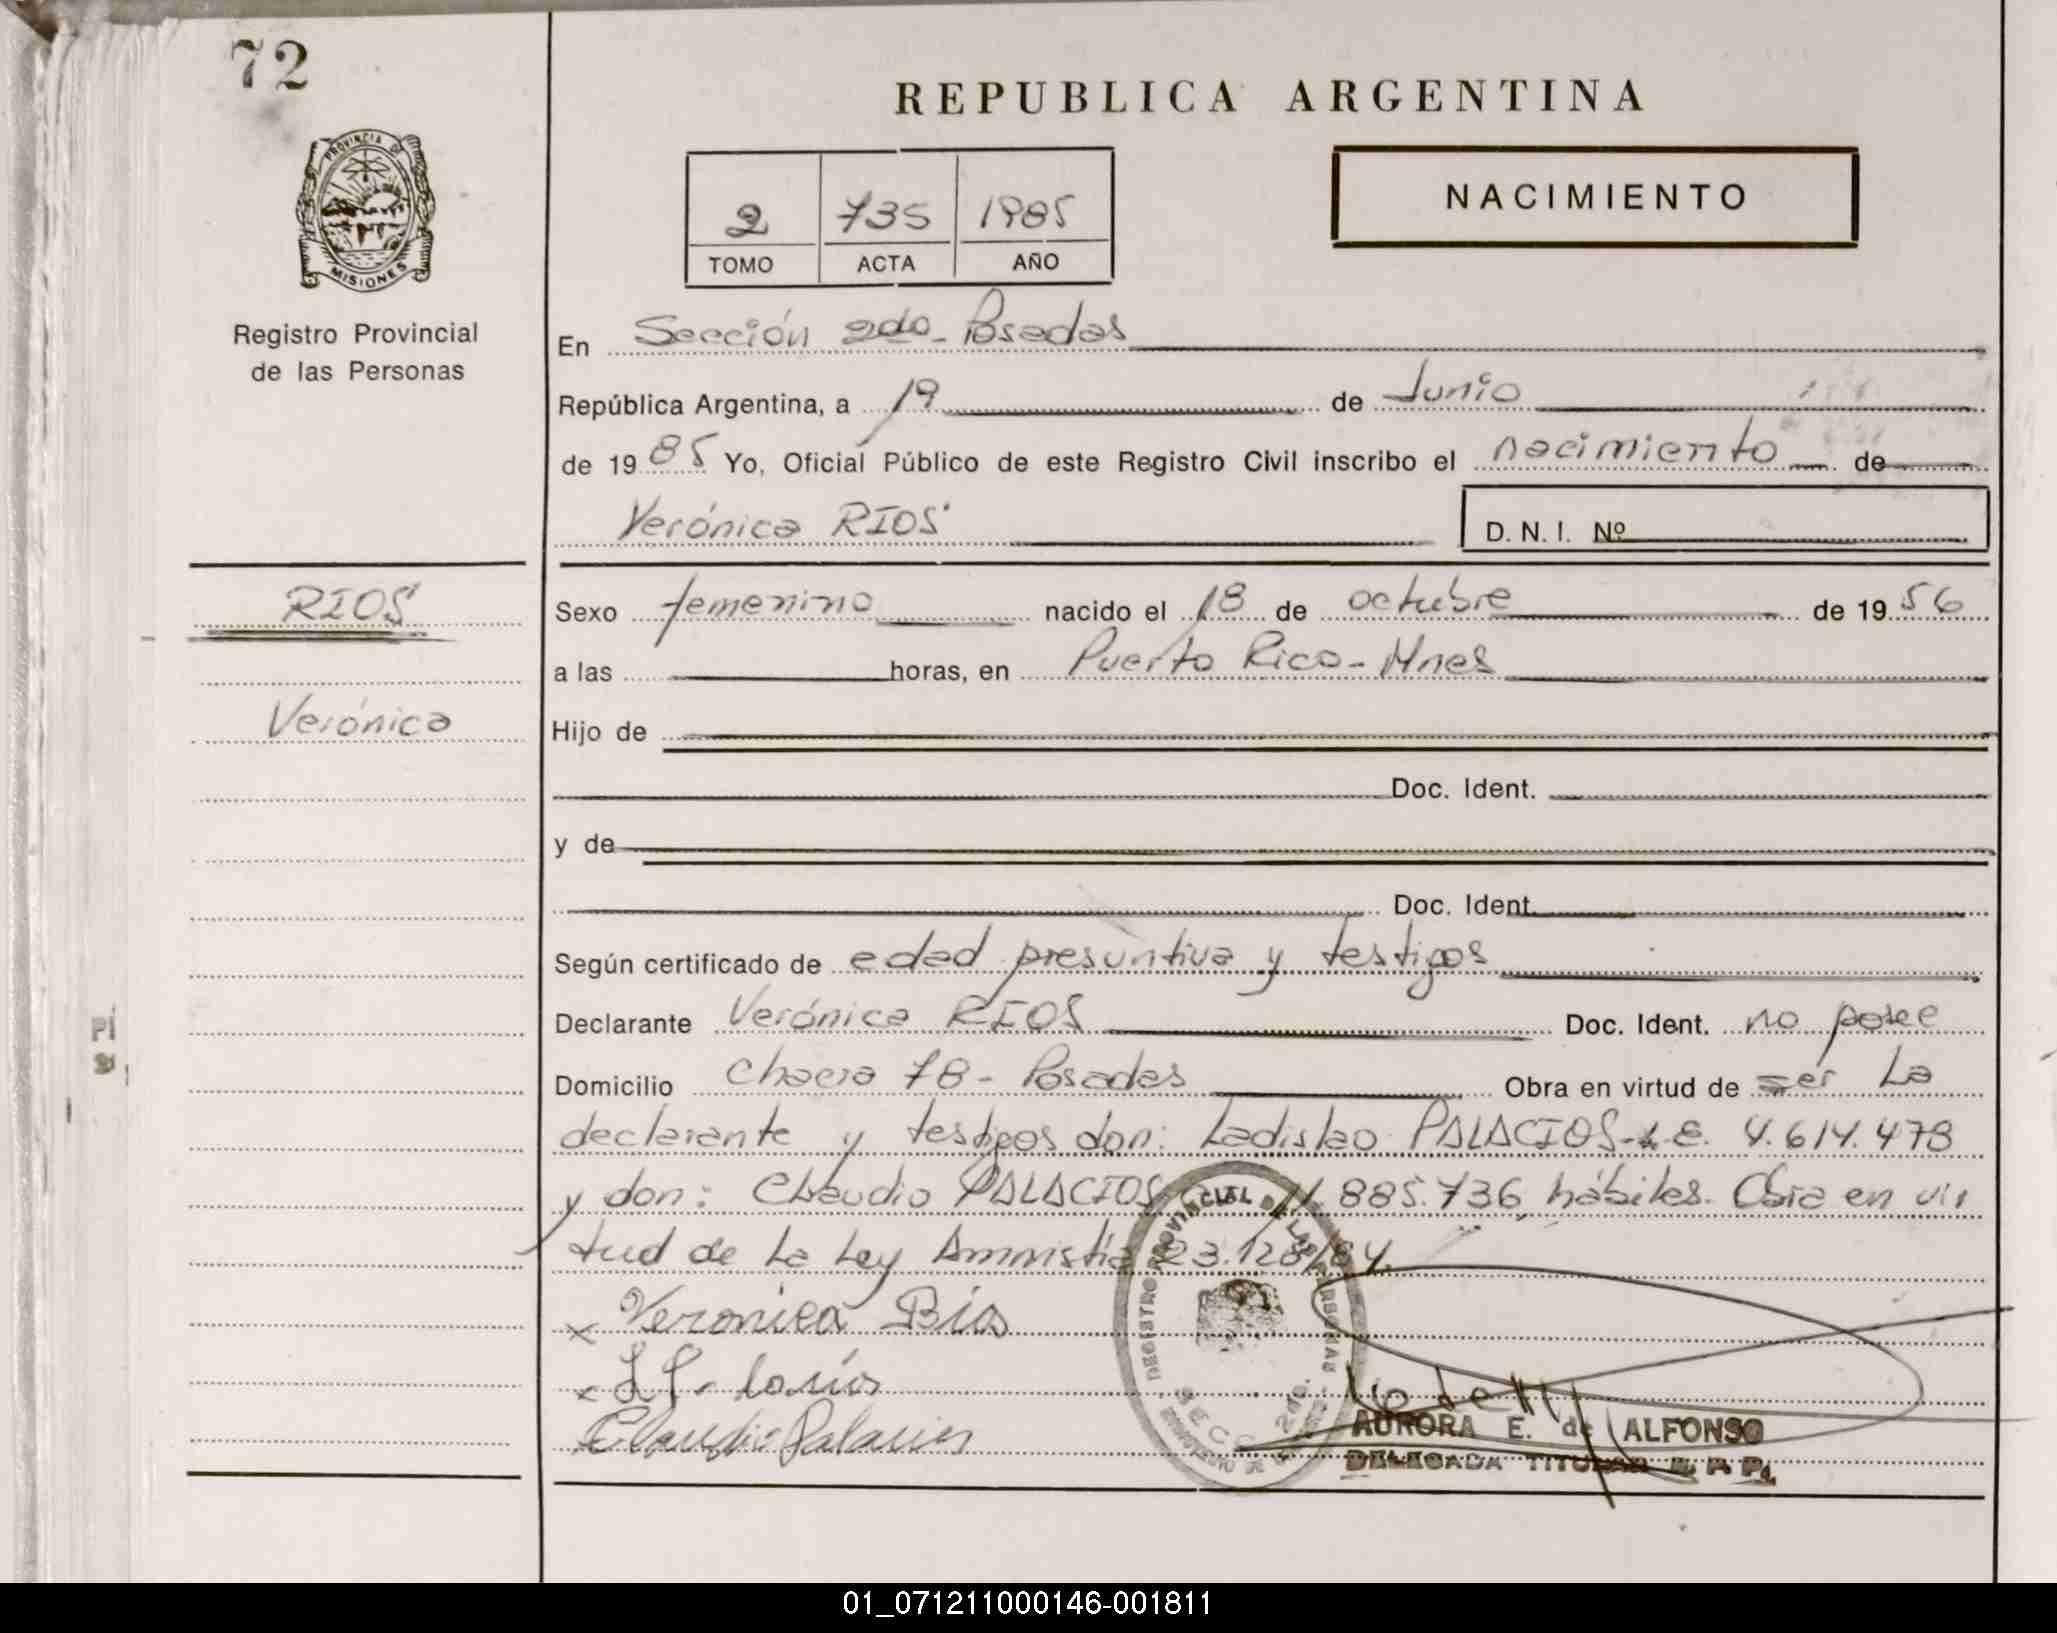 72
REPUBLICA ARGENTINA
PROVINCIA DE
MISIONES
Registro Provincial
de las Personas
2 735 1985
TOMO ACTA AÑO
NACIMIENTO
En Sección 2do - Posadas
República Argentina, a 19 de Junio
de 1985 Yo, Oficial Público de este Registro Civil inscribo el nacimiento de
Verónica RIOS
D. N. I. Nº
RIOS
Verónica
Sexo femenino nacido el 18 de octubre de 1956
a las horas, en Puerto Rico - Mnes
Hijo de
Doc. Ident.
y de
Doc. Ident.
Según certificado de edad presuntiva y testigos
Declarante Verónica RIOS Doc. Ident. no posee
Domicilio Chacra 78 - Posadas Obra en virtud de ser La
declarante y testigos don: Ladislao PALACIOS - L.E. 4.614.478
y don: Claudio PALACIOS 885.736, hábiles. Obra en vir
tud de La Ley Amnistía 23.128/84.
x Veronica Bios
x
Claudio Palacios
AURORA E. de ALFONSO
DELEGADA TITULAR R. P. P.
01_071211000146-001811